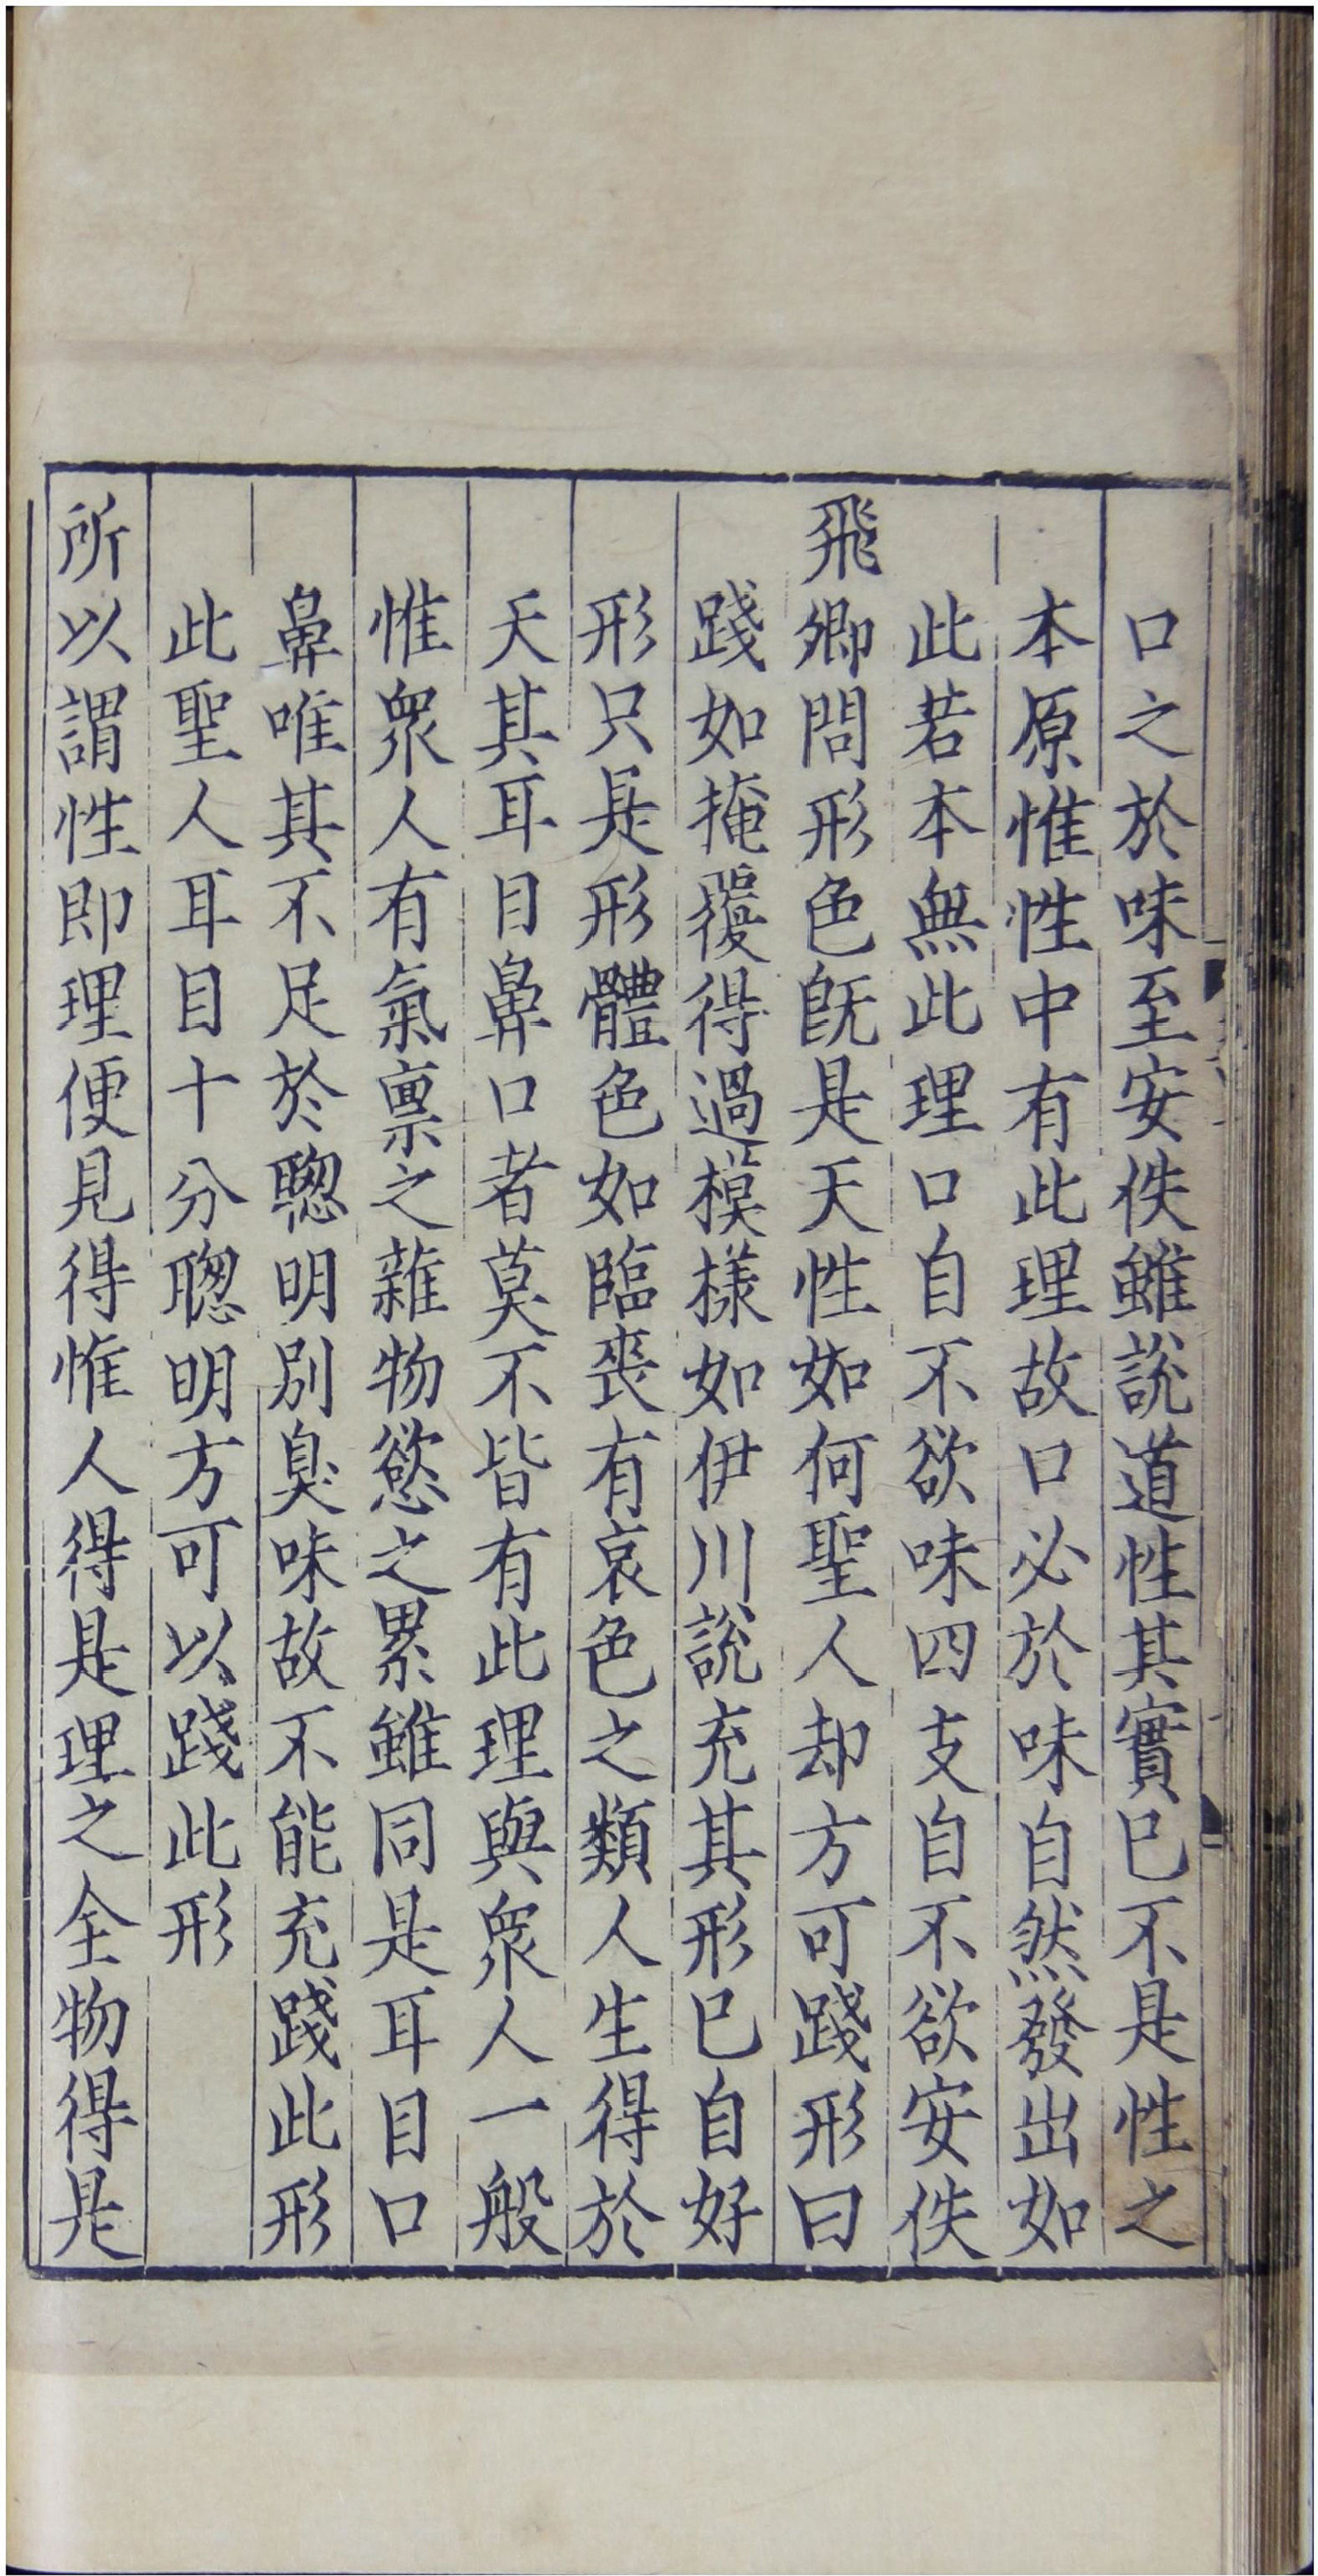 口之於味至安佚雖說道性其實已不是性之
本原惟性中有此理故口必於味自然發出如
此若本無此理口自不欲味四支自不欲安佚
飛卿問形色旣是天性如何聖人却方可踐形曰
踐如掩覆得過模樣如伊川說充其形已自好
形只是形體色如臨喪有哀色之類人生得於
天其耳目鼻口者莫不皆有此理與衆人一般
惟衆人有氣禀之雜物慾之累雖同是耳目口
鼻唯其不足於聰明別臭味故不能充踐此形
此聖人耳目十分聰明方可以踐此形
所以謂性即理便見得惟人得是理之全物得是